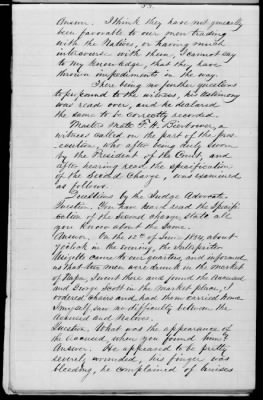 53.
Answer. I think they have not generally
been favorable to our men trading
with the Natives, or having much
intercourse with them, I cannot say
to my knowledge, that they have
thrown impediments in the way.
There being no further questions
to propound to the witness, his testimony
was read over, and he declared
the same to be correctly recorded.
Master's Mate F. H. a
witness called on the part of the pros-
ecution, who after being duly sworn
by the President of the Court, and
after hearing read the specification
of the Second Charge, was examined
as follows.
Questions by the Judge Advocate.
Question. You have heard read the specifi-
cation of the second charge, state all
you know about the same.
Answer. On the of June about
7 o'clock in the evening, the Interpreter
came to our quarters, and informed
us that two men were drunk in the market
of Napa, I went there and found the Accused
and George Scott in the market place, I
ordered chairs and had them carried home
I myself saw no difficulty between the
Accused and Natives.
Question. What was the appearance of
the Accused, when you found him?
Answer. He appeared to be pretty
severely wounded, his finger was
bleeding, he complained of bruises